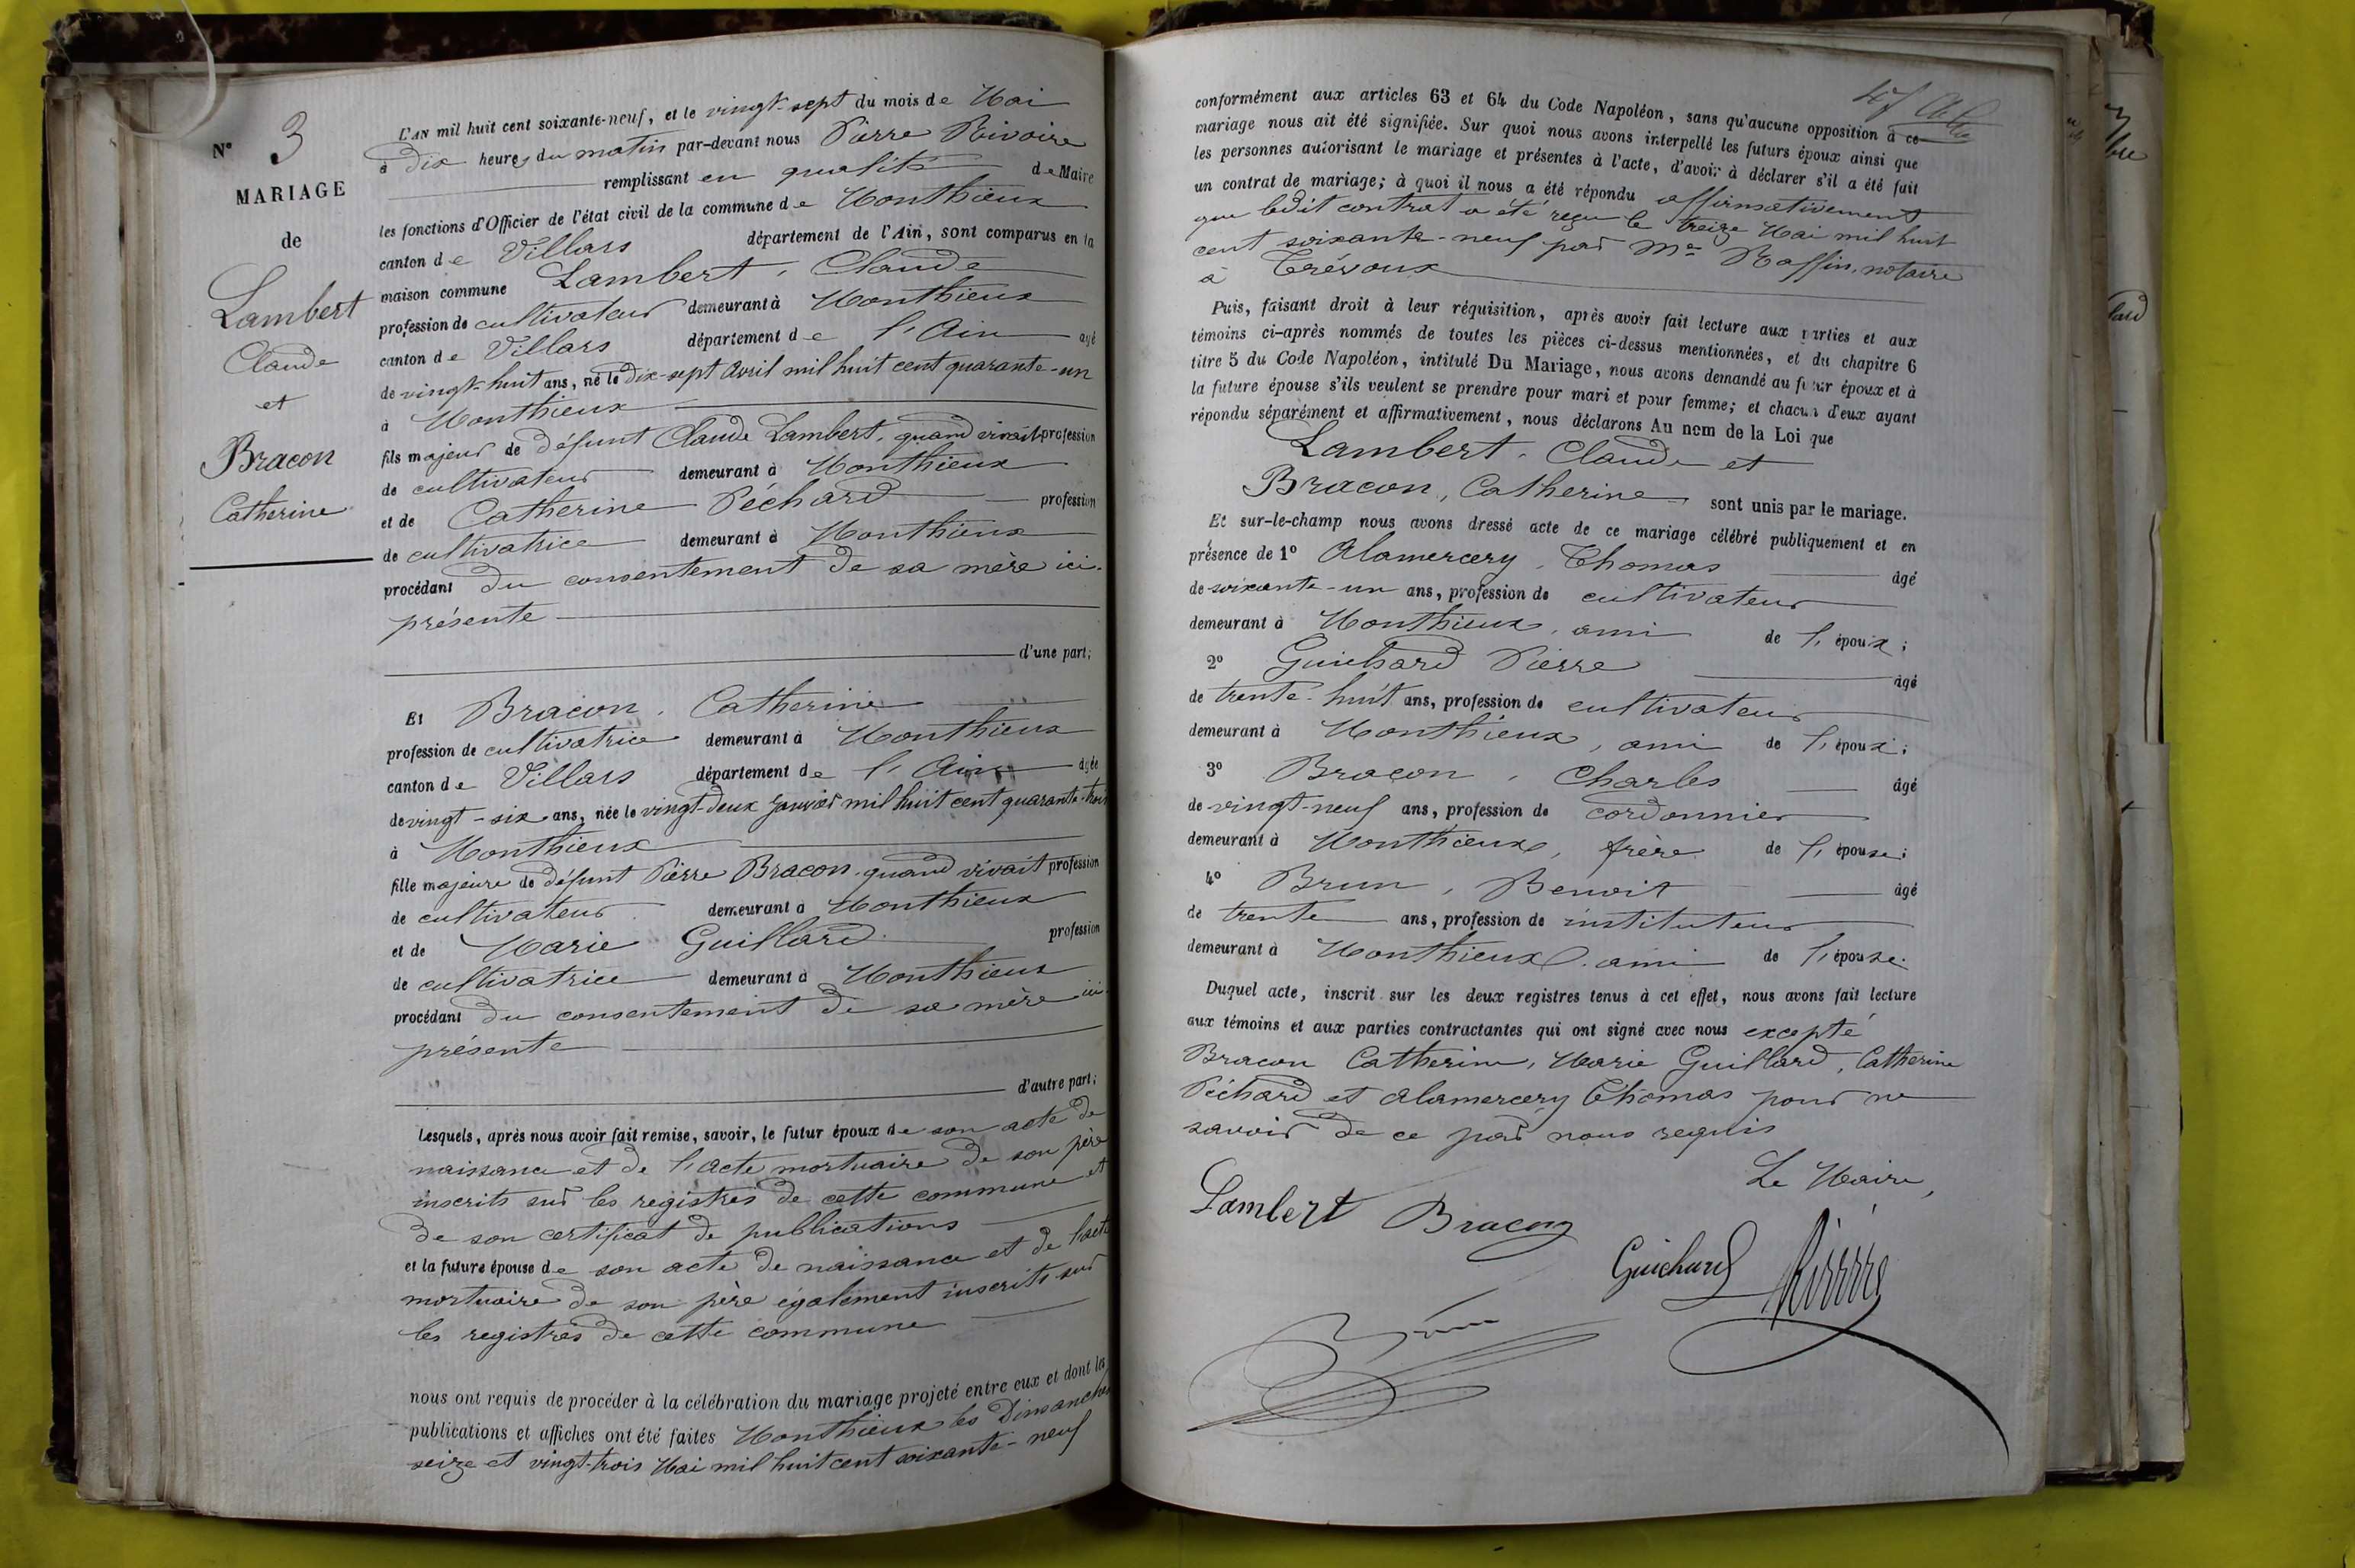 N° 3
MARIAGE
de
Lambert
Claude
et
Bracon
Catherine
L'AN mil huit cent soixante-neuf, et le vingt-sept du mois de Mai
à dix heures du matin par-devant nous Pierre Rivoire
remplissant en qualité de Maire
les fonctions d'Officier de l'état civil de la commune de Monthieux
canton de Villars département de l'Ain, sont comparus en la
maison commune Lambert, Claude
profession de cultivateur demeurant à Monthieux
canton de Villars département de l'Ain agé
de vingt-huit ans, né le dix-sept Avril mil huit cent quarante-un
à Monthieux
fils majeur de défunt Claude Lambert, quand vivait profession
de cultivateur demeurant à Monthieux
et de Catherine Péchard profession
de cultivatrice demeurant à Monthieux
procédant du consentement de sa mère ici
présente
d'une part;
Et Bracon, Catherine
profession de cultivatrice demeurant à Monthieux
canton de Villars département de l'Ain agée
de vingt-six ans, née le vingt-deux Janvier mil huit cent quarante-trois
à Monthieux
fille majeure de défunt Pierre Bracon, quand vivait profession
de cultivateur demeurant à Monthieux
et de Marie Guillard profession
de cultivatrice demeurant à Monthieux
procédant du consentement de sa mère ici
présente
d'autre part;
Lesquels, après nous avoir fait remise, savoir, le futur époux de son acte de
naissance et de l'acte mortuaire de son père
inscrits sur les registres de cette commune et
de son certificat de publications
et la future épouse de son acte de naissance et de l'acte
mortuaire de son père également inscrits sur
les registres de cette commune
nous ont requis de procéder à la célébration du mariage projeté entre eux et dont les
publications et affiches ont été faites Monthieux les Dimanches
seize et vingt-trois Mai mil huit cent soixante-neuf
conformément aux articles 63 et 64 du Code Napoléon, sans qu'aucune opposition à ce
mariage nous ait été signifiée. Sur quoi nous avons interpellé les futurs époux ainsi que
les personnes autorisant le mariage et présentes à l'acte, d'avoir à déclarer s'il a été fait
un contrat de mariage; à quoi il nous a été répondu affirmativement
que ledit contrat a été reçu le treize Mai mil huit
cent soixante-neuf par Me Raffin, notaire
à Trévoux
Puis, faisant droit à leur réquisition, après avoir fait lecture aux parties et aux
témoins ci-après nommés de toutes les pièces ci-dessus mentionnées, et du chapitre 6
titre 5 du Code Napoléon, intitulé Du Mariage, nous avons demandé au futur époux et à
la future épouse s'ils veulent se prendre pour mari et pour femme; et chacun d'eux ayant
répondu séparément et affirmativement, nous déclarons Au nom de la Loi que
Lambert, Claude et
Bracon, Catherine sont unis par le mariage.
Et sur-le-champ nous avons dressé acte de ce mariage célébré publiquement et en
présence de 1° Alamercery, Thomas âgé
de soixante-un ans, profession de cultivateur
demeurant à Monthieux, ami de l'époux;
2° Guichard Pierre âgé
de trente-huit ans, profession de cultivateur
demeurant à Monthieux, ami de l'époux;
3° Bracon, Charles âgé
de vingt-neuf ans, profession de cordonnier
demeurant à Monthieux, frère de l'épouse;
4° Brun, Benoit âgé
de trente ans, profession de instituteur
demeurant à Monthieux, ami de l'épouse.
Duquel acte, inscrit sur les deux registres tenus à cet effet, nous avons fait lecture
aux témoins et aux parties contractantes qui ont signé avec nous excepté
Bracon Catherine, Marie Guillard, Catherine
Péchard et Alamercery Thomas pour ne
savoir de ce par nous requis
Le Maire,
Lambert Bracon
Guichard Rivoire
Brun